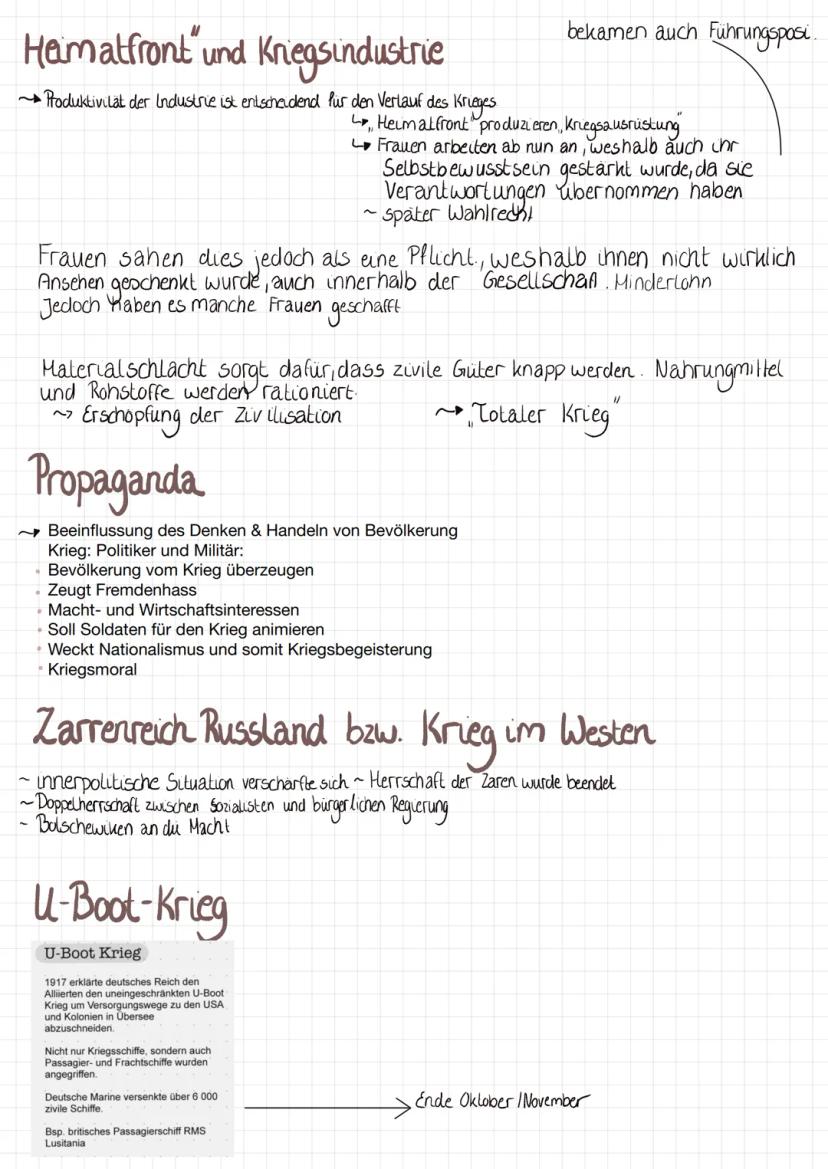 bekamen auch Führungsposi.
Heimatfront" und Kriegsindustrie
~→ Produktivität der Industrie ist entscheidend für den Verlauf des Krieges
↳ „Heimatfront" produzieren „Kriegsausrüstung"
↳ Frauen arbeiten ab nun an, weshalb auch ihr
Selbstbewusstsein gestärkt wurde, da sie
Verantwortungen übernommen haben
~ später Wahlrecht
Frauen sahen dies jedoch als eine Pflicht, weshalb ihnen nicht wirklich
Ansehen geschenkt wurde, auch innerhalb der Gesellschaft. Minderlohn
Jedoch haben es manche Frauen geschafft
Materialschlacht sorgt dafür, dass zivile Güter knapp werden. Nahrungmittel
und Rohstoffe werden rationiert.
~> Erschöpfung der Zivilisation ~→ „Totaler Krieg"
Propaganda
~→ Beeinflussung des Denken & Handeln von Bevölkerung
Krieg: Politiker und Militär:
• Bevölkerung vom Krieg überzeugen
• Zeugt Fremdenhass
• Macht- und Wirtschaftsinteressen
• Soll Soldaten für den Krieg animieren
• Weckt Nationalismus und somit Kriegsbegeisterung
• Kriegsmoral
Zarrenreich Russland bzw. Krieg im Westen
~ innerpolitische Situation verschärfte sich ~ Herrschaft der Zaren wurde beendet
~ Doppelherrschaft zwischen Sozialisten und bürgerlichen Regierung
~ Bolschewiken an die Macht
U-Boot-Krieg
U-Boot Krieg
1917 erklärte deutsches Reich den
Alliierten den uneingeschränkten U-Boot
Krieg um Versorgungswege zu den USA
und Kolonien in Übersee
abzuschneiden.
Nicht nur Kriegsschiffe, sondern auch
Passagier- und Frachtschiffe wurden
angegriffen.
Deutsche Marine versenkte über 6 000
zivile Schiffe.
→ Ende Oktober/November
Bsp. britisches Passagierschiff RMS
Lusitania